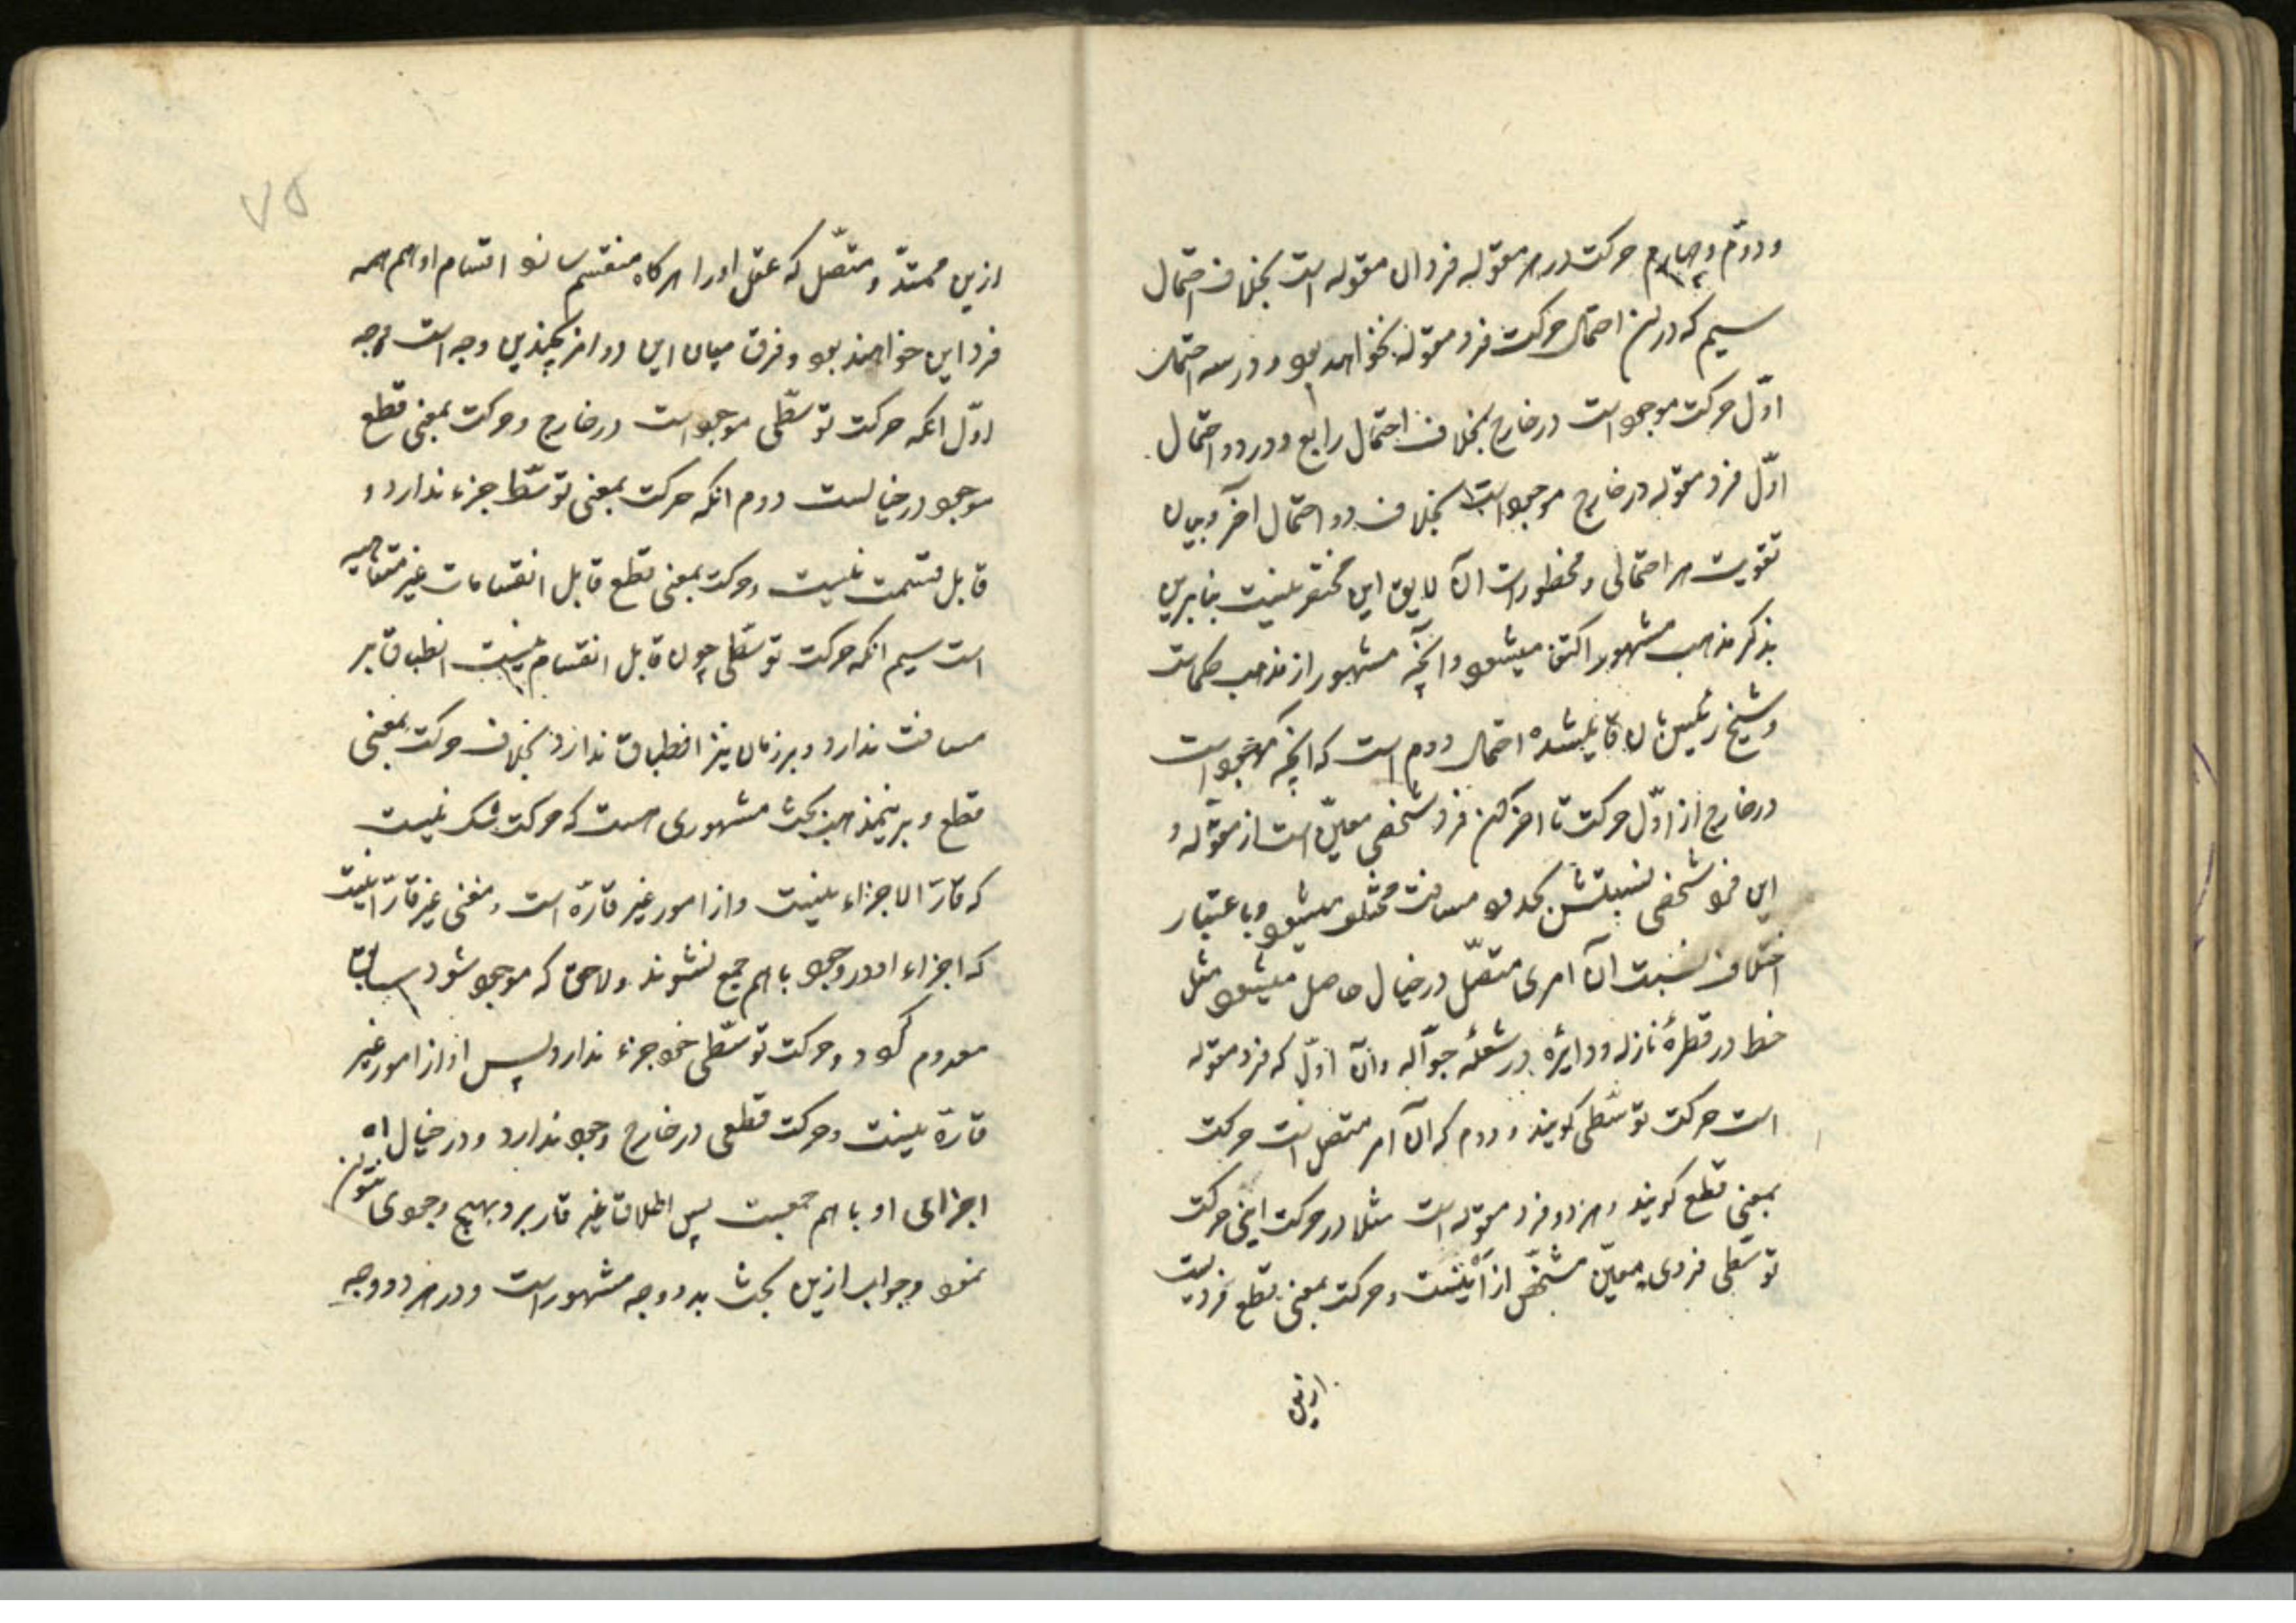 و دوّم و چهارم حرکت در هر مقوله فرد ان مقوله است بخلاف احتمال
سیم که در این احتمال حرکت فرد مقوله نخواهد بود و در سه احتمال
اوّل حرکت موجود است در خارج بخلاف احتمال رابع و در دو احتمال
اوّل فرد مقوله در خارج موجود است بخلاف دو احتمال آخر و بیان
تقویت هر احتمالی و محظورات ان لایق این مختصر نیست بنابرین
بذکر مذهب مشهور اکتفا میشود و انچه مشهور از مذهب حکماست
و شیخ رئیس بان قایل شده احتمال دوم است که انچه موجود است
در خارج از اوّل حرکت تا اخر ان فرد شخصی معیّن است از مقوله و
این فرد شخصی نسبتش بحدود مسافت مختلف میشود و باعتبار
اختلاف نسبت ان امری متصّل در خیال حاصل میشود مثل
خط در قطرهٔ نازله و دایره در شعلهٔ جوّاله و ان اوّل که فرد مقوله
است حرکت توسّطی کویند و دوم که ان امر متصل است حرکت
بمعنی قطع کویند و هر دو فرد مقوله است مثلا در حرکت اینی حرکت
توسّطی فردی معیّن مشخّص از اینست و حرکت بمعنی قطع فردیست
ازین
۷۵
ازین ممتدّ و متصّل که عقل او را هرکاه منقسم سازد اقسام او هم همه
فرد این خواهند بود و فرق میان این دو امر بچندین وجه است وجه
اوّل انکه حرکت توسّطی موجود است در خارج و حرکت بمعنی قطع
موجود در خیالست دوم انکه حرکت بمعنی توسّط جزء ندارد و
قابل قسمت نیست و حرکت بمعنی قطع قابل انقسامات غیر متناهیه
است سیم انکه حرکت توسّطی چون قابل انقسام نیست انطباق بر
مسافت ندارد و بر زمان نیز انطباق ندارد بخلاف حرکت بمعنی
قطع و برین مذهب بحث مشهوری هست که حرکت شک نیست
که قارّ الاجزاء نیست و از امور غیر قارّه است و معنی غیر قارّ انیست
که اجزاء او در وجود با هم جمع نشوند و لاحق که موجود شود سابق
معدوم کردد و حرکت توسّطی خود جزء ندارد پس او از امور غیر
قارّه نیست و حرکت قطعی در خارج وجود ندارد و در خیال
اجزای او با هم جمعست پس اطلاق غیر قار برو بهیچ وجهی نتوان
نمود و جواب ازین بحث بدو وجه مشهور است و در هر دو وجه